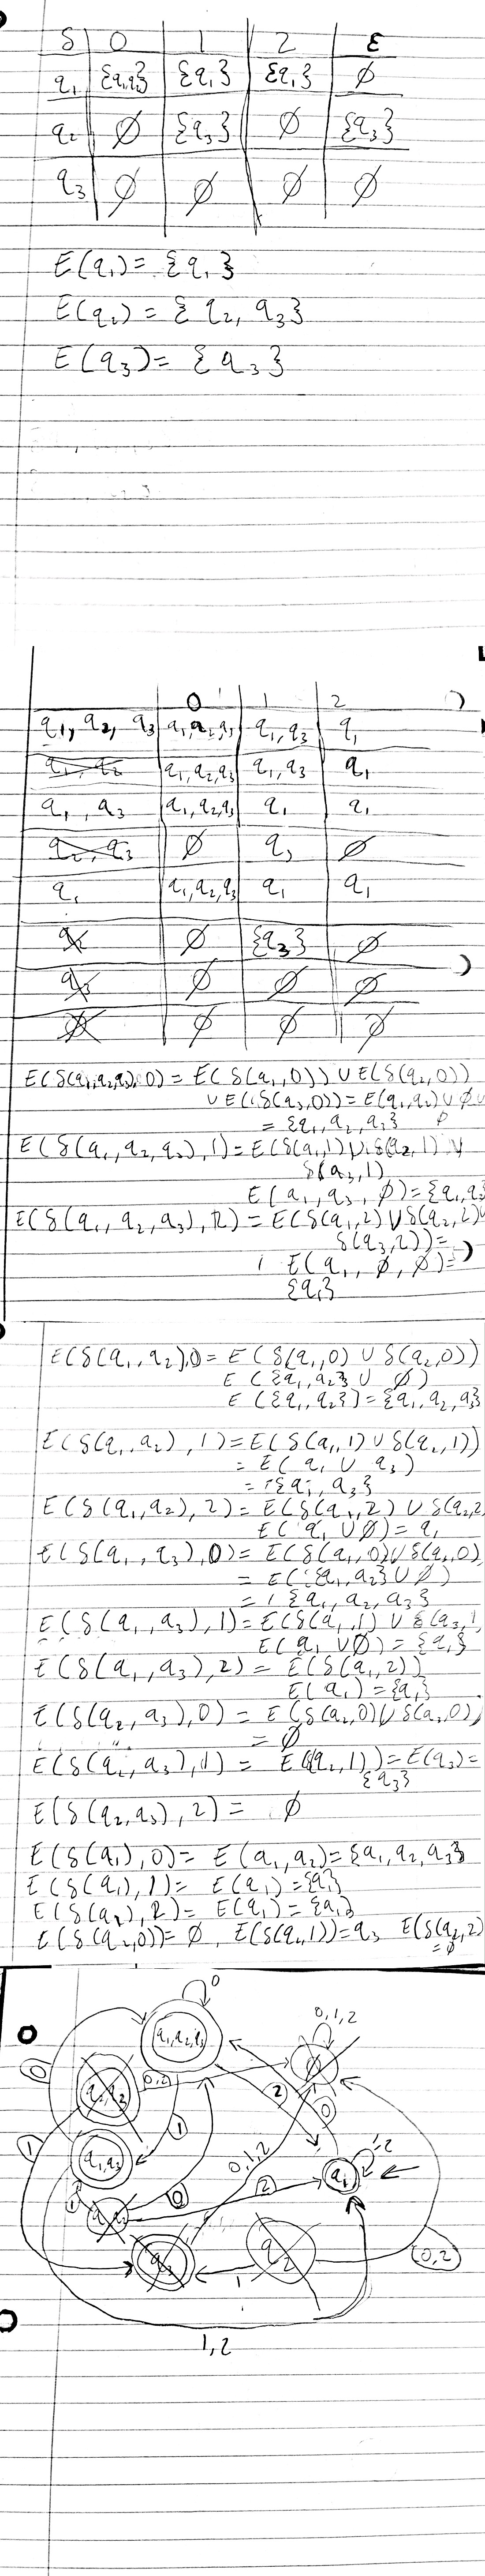 δ 0 1 2 ε
q₁ {q₁q₂} {q₁} {q₁} ∅
q₂ ∅ {q₃} ∅ {q₃}
q₃ ∅ ∅ ∅ ∅
E(q₁) = {q₁}
E(q₂) = {q₂, q₃}
E(q₃) = {q₃}
0 1 2
q₁, q₂, q₃ q₁,q₂,q₃ q₁,q₃ q₁
q₁, q₂ q₁,q₂,q₃ q₁,q₃ q₁
q₁, q₃ q₁,q₂,q₃ q₁ q₁
q₂, q₃ ∅ q₃ ∅
q₁ q₁,q₂,q₃ q₁ q₁
q₂ ∅ {q₃} ∅
q₃ ∅ ∅ ∅
∅ ∅ ∅ ∅
E(δ(q₁,q₂,q₃),0) = E(δ(q₁,0)) ∪ E(δ(q₂,0))
∪ E(δ(q₃,0)) = E(q₁,q₂) ∪ ∅ ∪
= {q₁, q₂, q₃} ∅
E(δ(q₁, q₂, q₃), 1) = E(δ(q₁,1) ∪ δ(q₂,1) ∪
δ(q₃,1)
E(q₁, q₃, ∅) = {q₁,q₃
E(δ(q₁, q₂, q₃), 2) = E(δ(q₁,2) ∪ δ(q₂,2) ∪
δ(q₃,2)) =
E(q₁, ∅, ∅) =
{q₁}
E(δ(q₁, q₂),0 = E(δ(q₁,0) ∪ δ(q₂,0))
E({q₁,q₂} ∪ ∅)
E({q₁,q₂}) = {q₁, q₂, q₃}
E(δ(q₁,q₂), 1) = E(δ(q₁,1) ∪ δ(q₂,1))
= E(q₁ ∪ q₃)
= {q₁, q₃}
E(δ(q₁,q₂), 2) = E(δ(q₁,2) ∪ δ(q₂,2
E(q₁ ∪ ∅) = q₁
E(δ(q₁, q₃),0) = E(δ(q₁,0) ∪ δ(q₃,0)
= E({q₁,q₂} ∪ ∅)
= {q₁, q₂, q₃}
E(δ(q₁, q₃),1) = E(δ(q₁,1) ∪ δ(q₃,1
E(q₁ ∪ ∅) = {q₁}
E(δ(q₁, q₃), 2) = E(δ(q₁,2))
E(q₁) = {q₁}
E(δ(q₂,q₃),0) = E(δ(q₂,0) ∪ δ(q₃,0)
= ∅
E(δ(q₂, q₃),1) = E((q₂,1)) = E(q₃) =
{q₃}
E(δ(q₂,q₃), 2) = ∅
E(δ(q₁),0) = E(q₁,q₂) = {q₁,q₂,q₃}
E(δ(q₁),1) = E(q₁) = {q₁}
E(δ(q₁),2) = E(q₁) = {q₁}
E(δ(q₂,0)) = ∅, E(δ(q₂,1)) = q₃ E(δ(q₂,2)
= ∅
0
q₁,q₂,q₃
0,1,2
∅
0
q₂,q₃
0,2
1
2
0
1
q₁,q₃
0,1,2
1,2
q₁
0
2
q₃
q₂
1
0,2
1,2